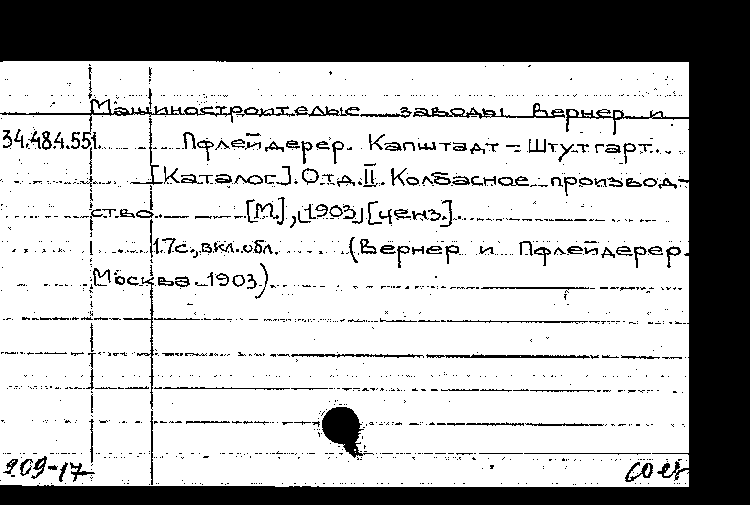 Машиностроителые заводы Вернер и
34.484.551. Пфлейдерер. Капштадт = Штутгарт.
[Каталог]. Отд. II. Колбасное производ-
ство. [М.], [1903] [ценз.].
17с., вкл. обл. (Вернер и Пфлейдерер.
Москва 1903)
209-17